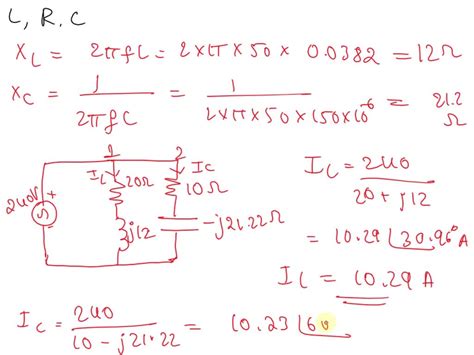 L, R. C
X_L = 2πfL = 2×π×50 × 0.0382 = 12Ω
X_C = 1 / 2πfC = 1 / 2×π×50×150×10^-6 = 21.2 Ω
240V
S
1
I_L
20Ω
j12
2
I_C
10Ω
-j21.22Ω
I_L = 240 / 20 + j12
= 10.29 ∠30.96° A
I_L = 10.29 A
I_C = 240 / 10 - j21.22 = 10.23 ∠6